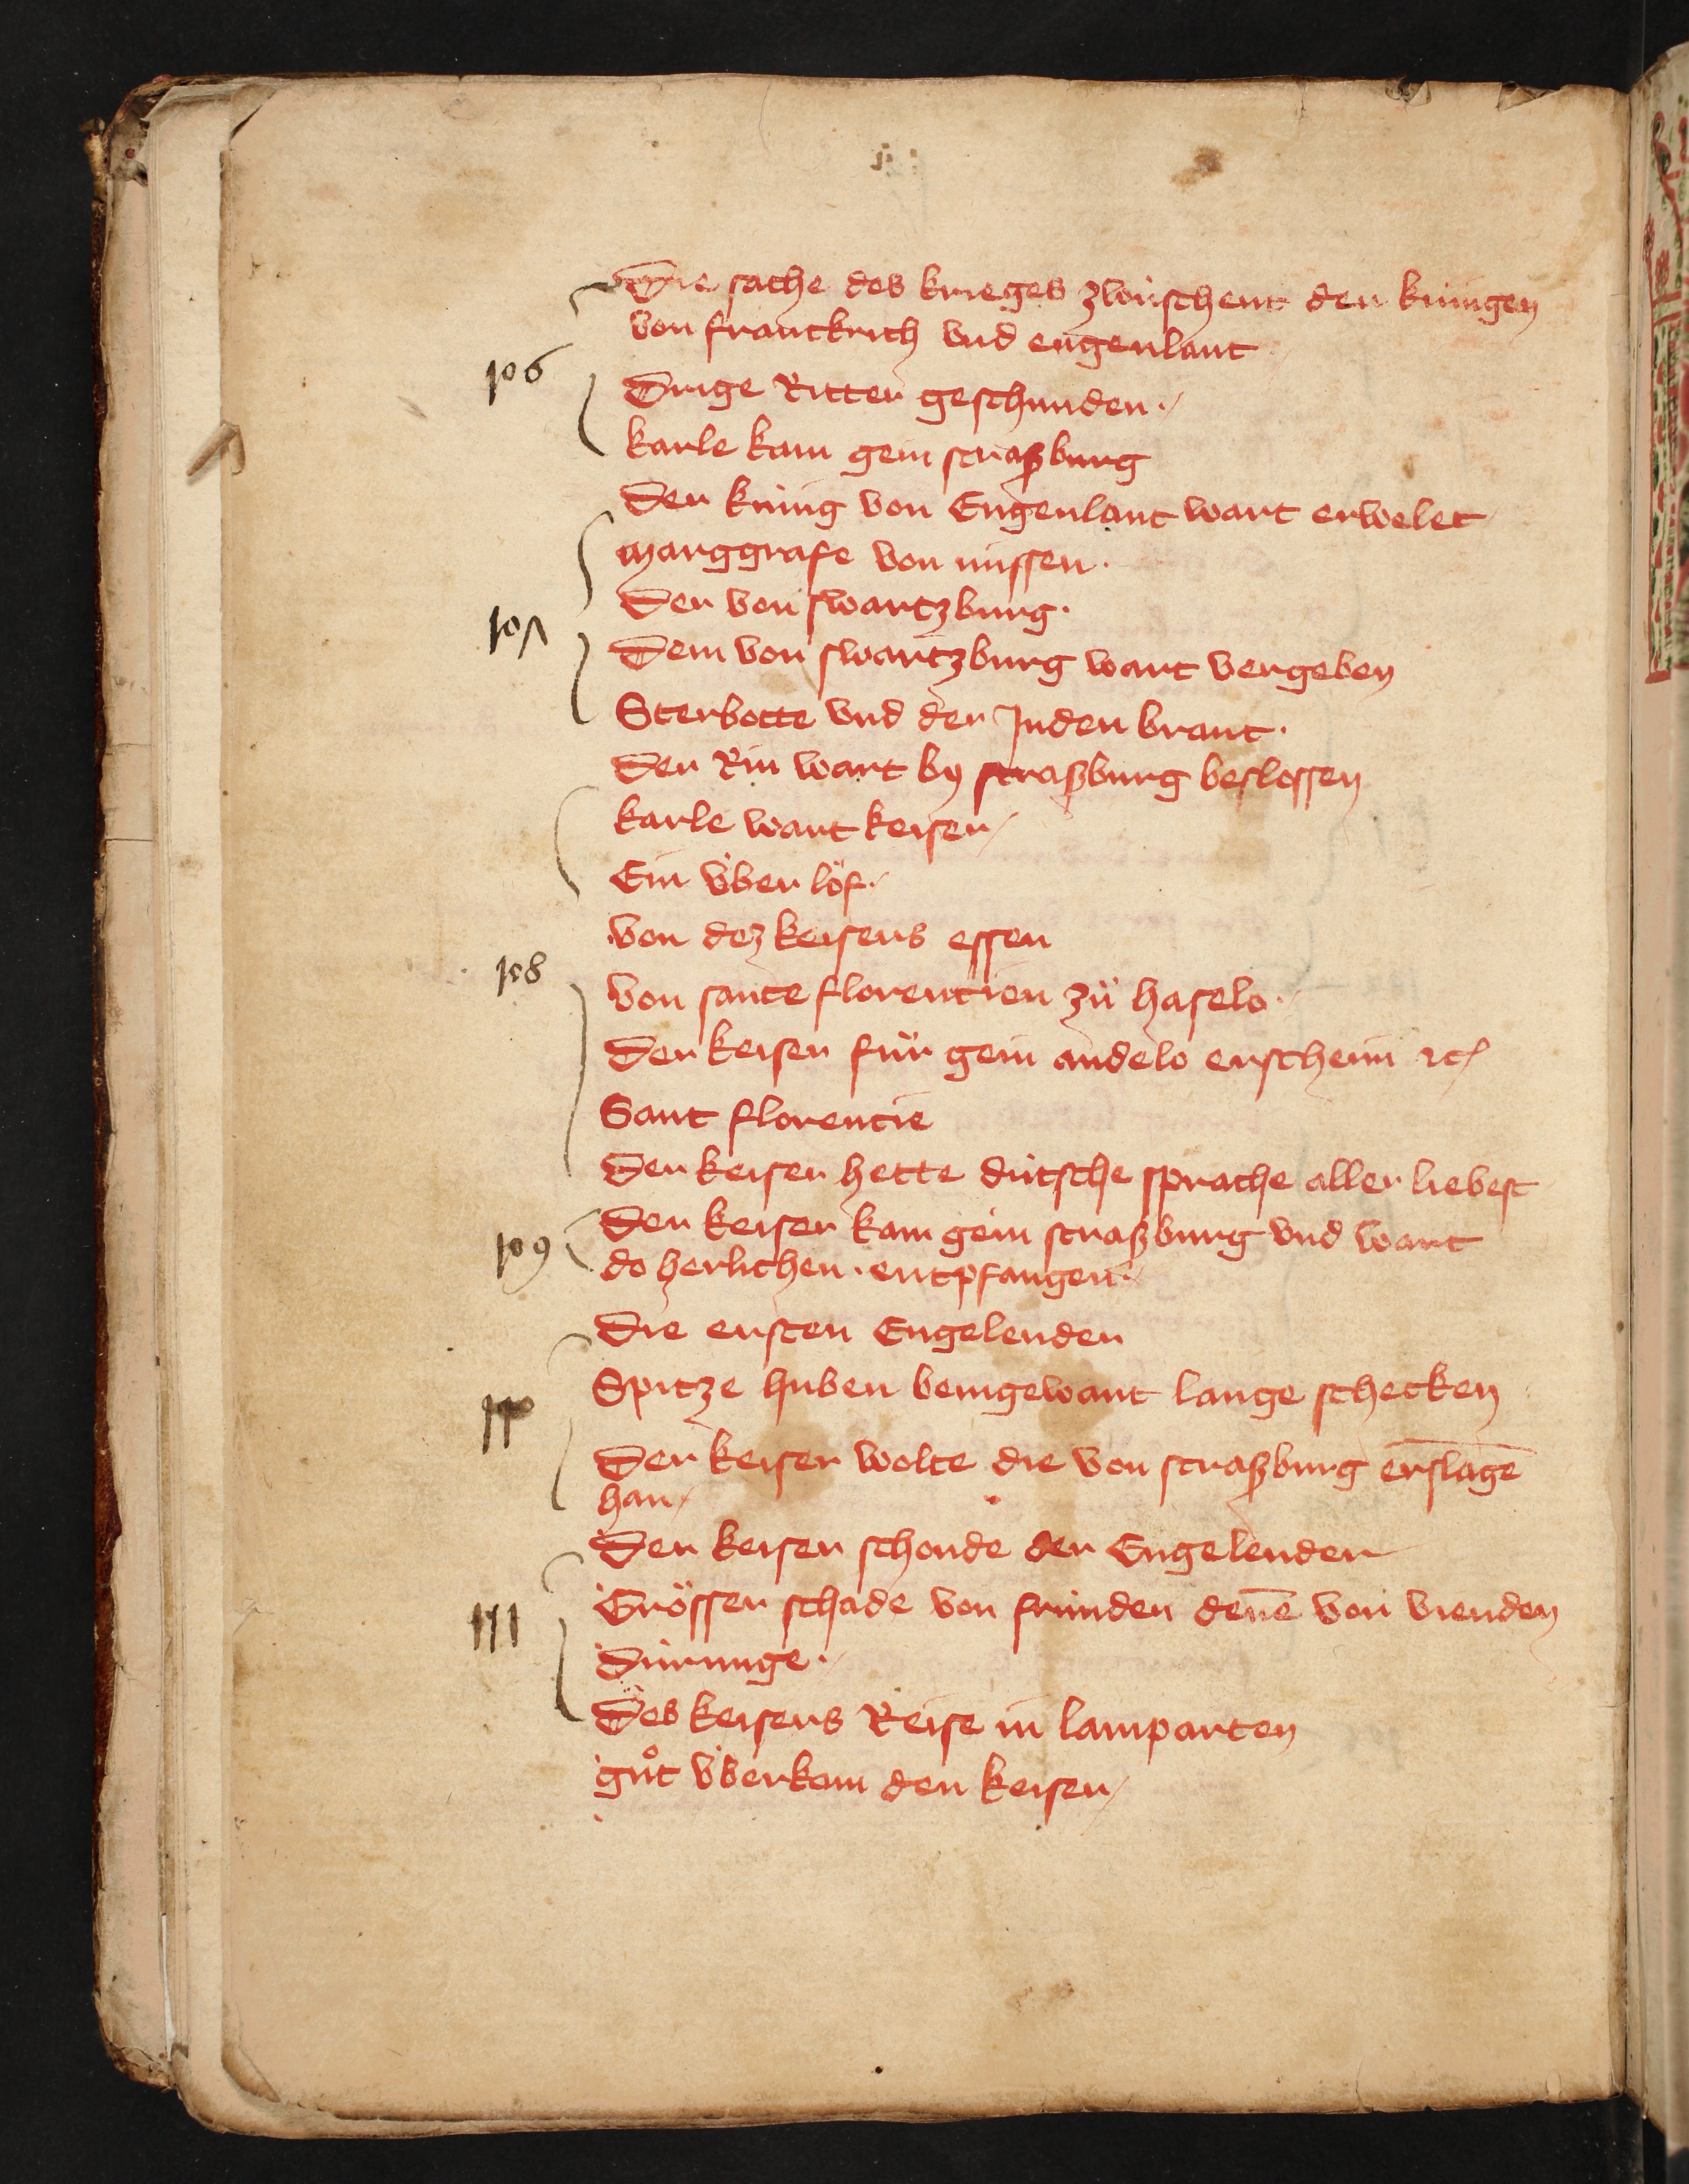 Die sache des krieges zwúschent den kúnigen
von franckrich vnd engenlant
106
Drige Ritter geschunden.
karle kam gein straßburg
Der kúnig von Engenlant wart erwelet
marggrafe von missen.
Der von swartzburg.
107
Dem von swartzburg wart vergeben
Sterbotte vnd der Juden brant.
Der Rin wart by straßburg beslossen
karle wart keiser
Ein v́ber löf.
von dez keisers essen
108
von sante florencien zů haselo.
Der keiser fůr gein andelo erschein ꝛc
Sant florencie
Der keiser hette dútsche sprache aller liebest
Der keiser kam gein straßburg vnd wart
109
do herlichen. entpfangen.
Die ersten Engelender
Spitze huben beingewant lange schecken
110
Der keiser wolte die von straßburg erslagē
han
Der keiser schonde der Engelender
Grösser schade von frúnden denē von vienden
111
Dúrunge.
Des keisers Reise in lamparten
gůt v́berkam den keiser